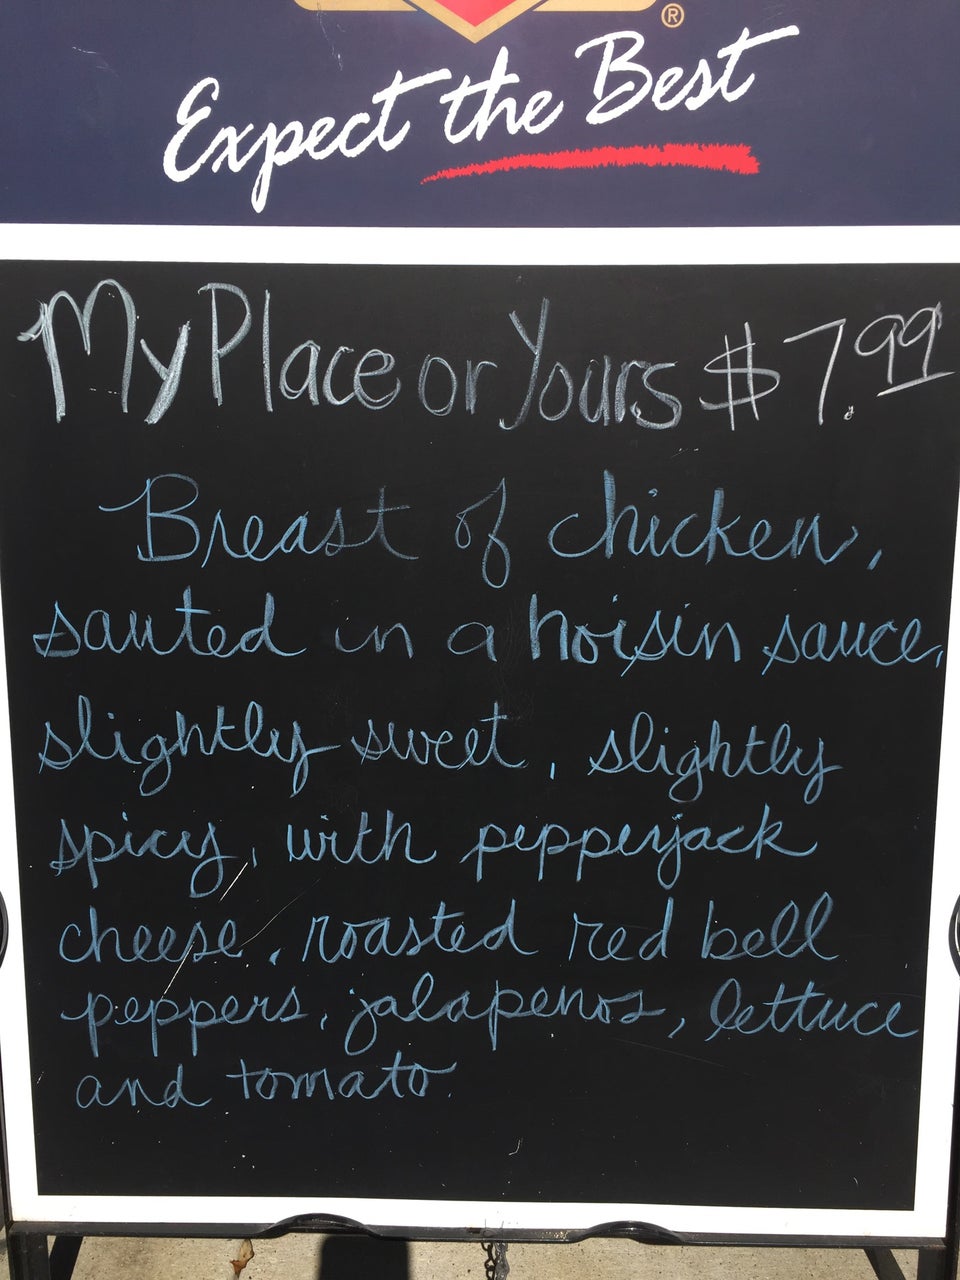 ®
Expect the Best
My Place or Yours $7.99
Breast of chicken,
sauted in a hoisin sauce,
slightly sweet, slightly
spicy, with pepperjack
cheese, roasted red bell
peppers, jalapenos, lettuce
and tomato.